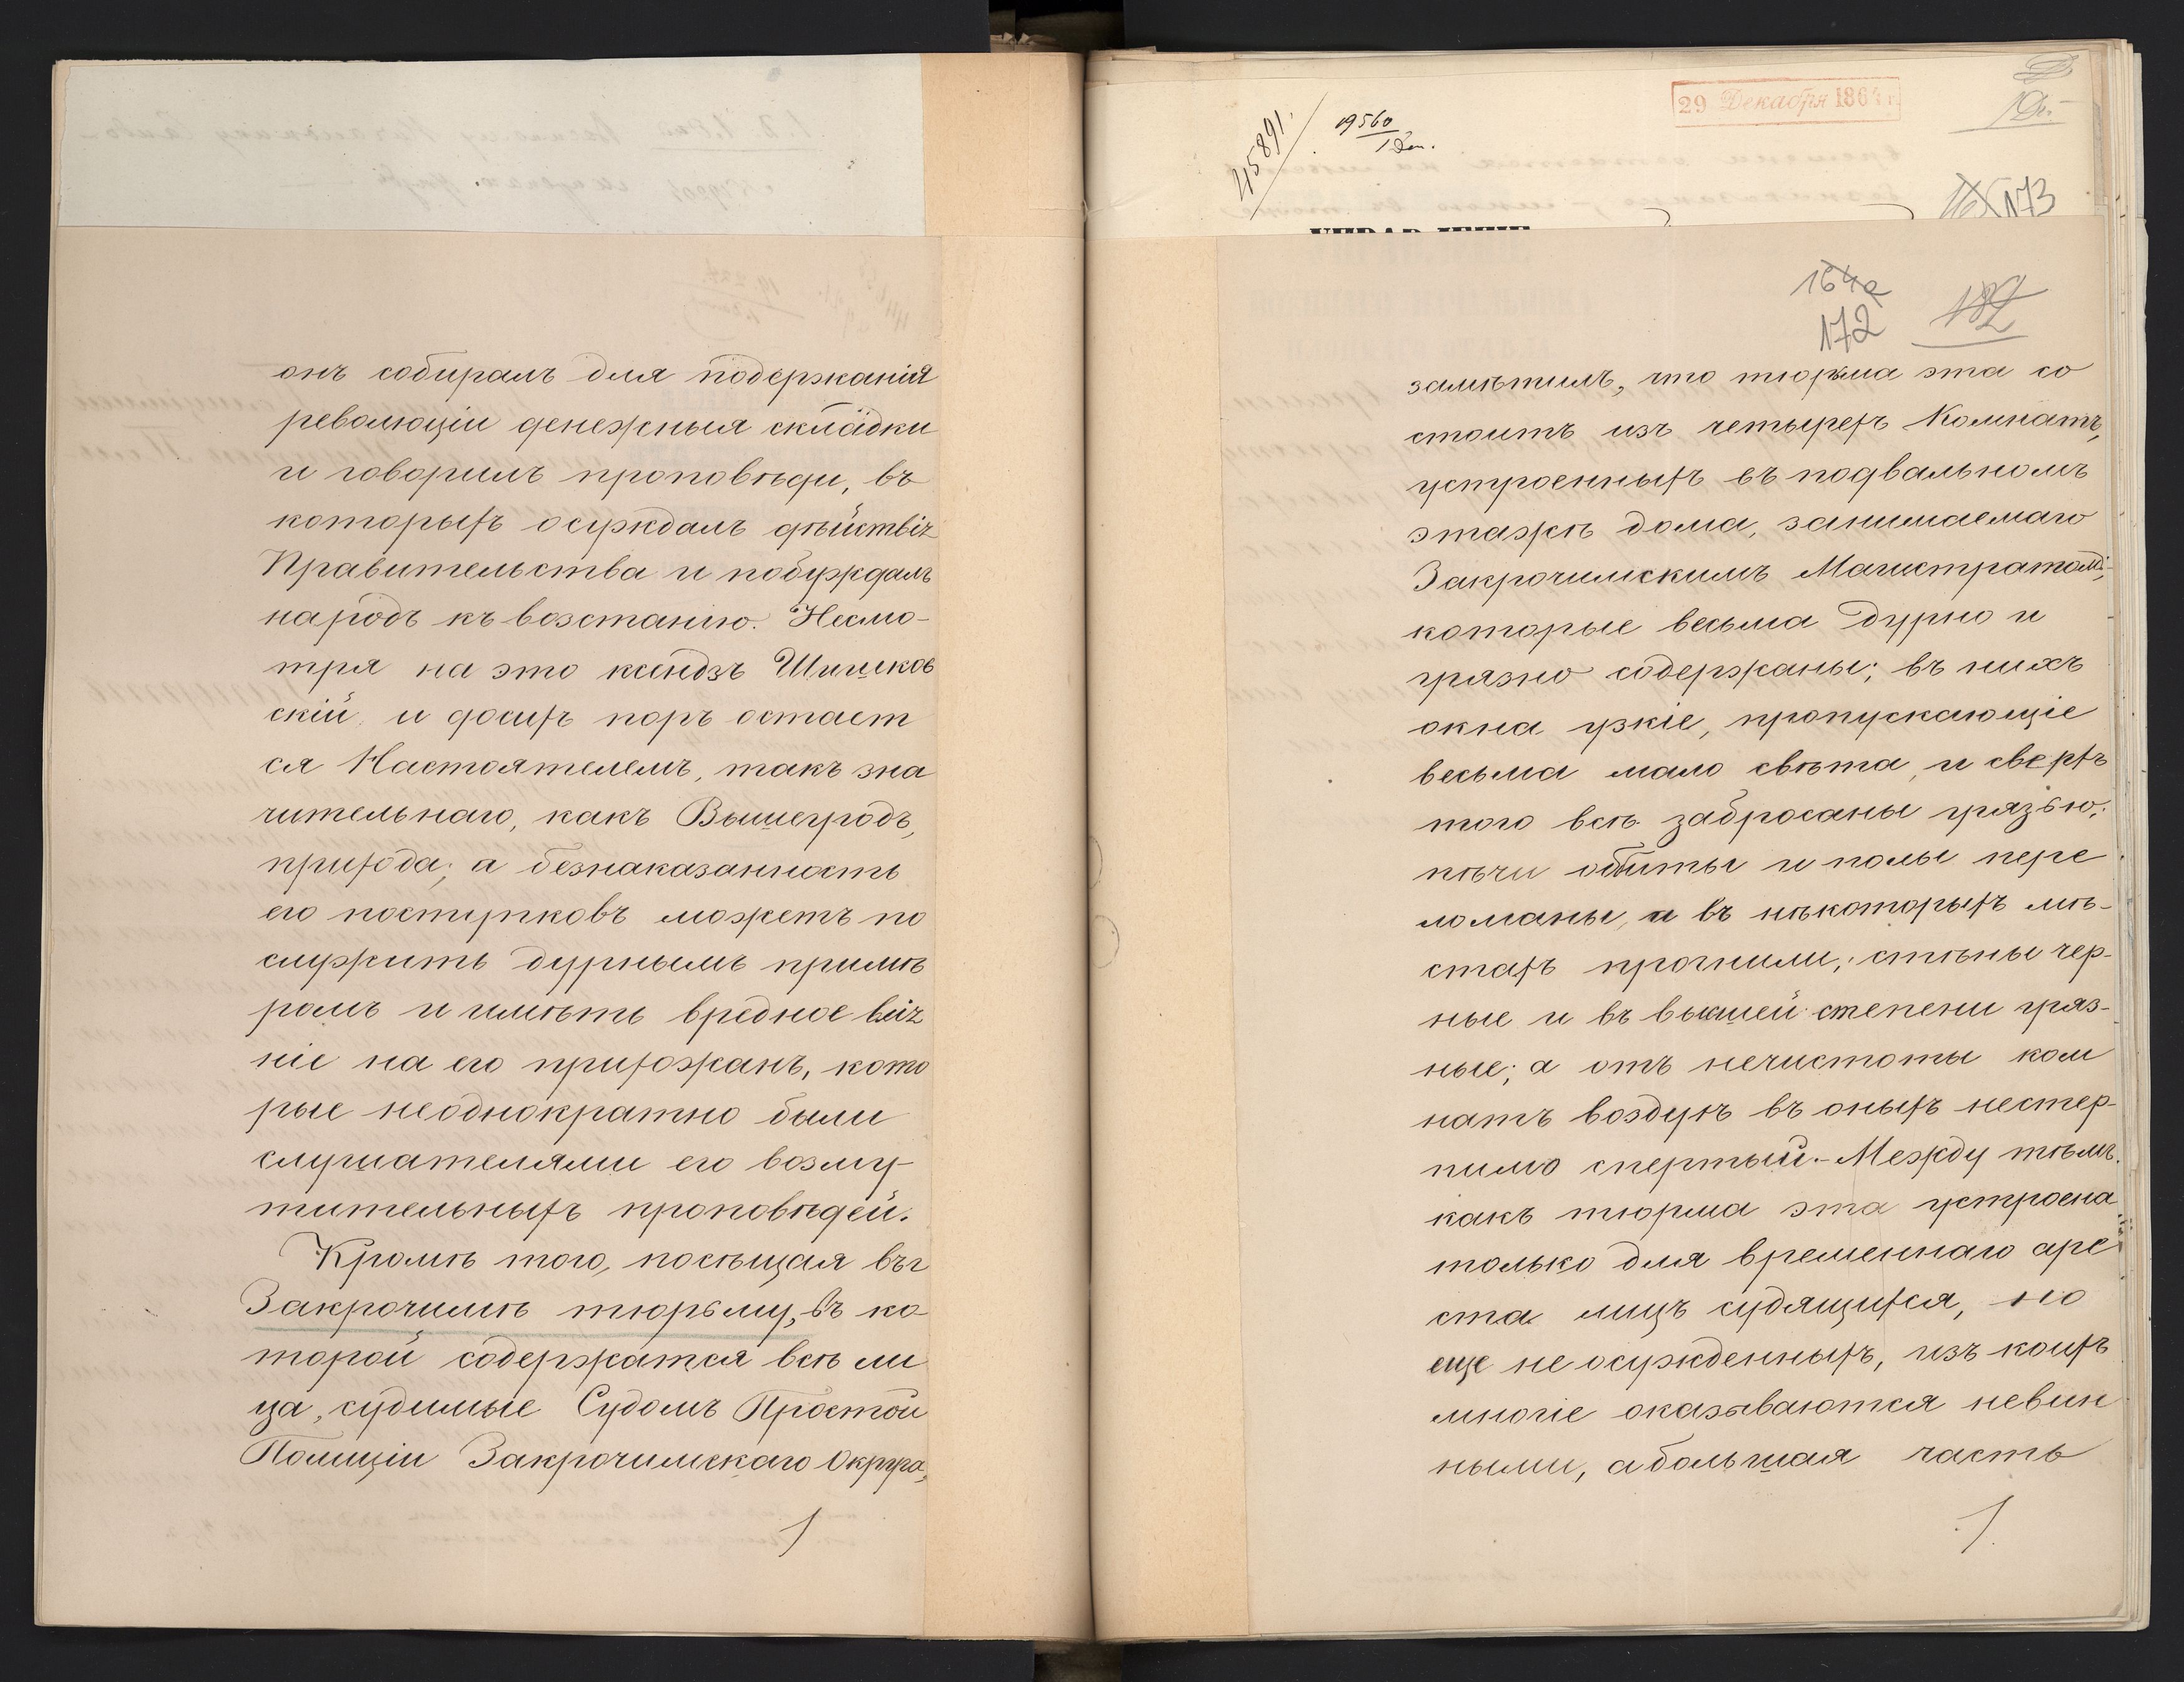 онъ собиралъ для подержанія
революціи денежныя складки
и говорилъ проповѣди, въ
которыхъ осуждалъ дѣйствія
Правительства и побуждалъ
народъ къ возстанію. Несмо-
тря на это ксендзъ Шишков
скій и досихъ поръ остает
ся Настоятелемъ, такъ зна
чительнаго, какъ Вышегродъ,
прихода; а безнаказанность
его поступковъ можетъ по
служить дурнымъ примѣ
ромъ и имѣть вредное вія
ніе на его прихожанъ, кото
рые неоднократно были
слушателями его возму-
тительныхъ проповѣдей.
Кромѣ того, посѣщая въ
Закрочимѣ тюрьму, въ ко-
торой содержатся всѣ ли
ца, судимые Судомъ Простой
Полиціи Закрочимскаго Округа,
45891.
19560
29 Декабря 1864 г.
173
164а
172
182
замѣтилъ, что тюрьма эта со
стоитъ изъ четырехъ Комнатъ,
устроенныхъ въ подвальномъ
этажѣ дома, занимаемаго
Закрочимскимъ Магистратомъ,
которые весьма дурно и
грязно содержаны; въ нихъ
окна узкіе, пропускающіе
весьма мало свѣта, и сверхъ
того всѣ забросаны грязью;
пѣчи обиты и полы пере
ломаны, и въ нѣкоторыхъ мѣ-
стахъ прогнили; стѣны чер-
ные и въ высшей степени гряз-
ные; а отъ нечистоты ком
натъ воздухъ въ оныхъ нестер-
пимо спертый. - Между тѣмъ.
какъ тюрма эта устроена
только для временнаго аре
ста лицъ судящихся, но
еще не осужденныхъ, изъ коихъ
многіе оказываются невин
ными, а большая часть